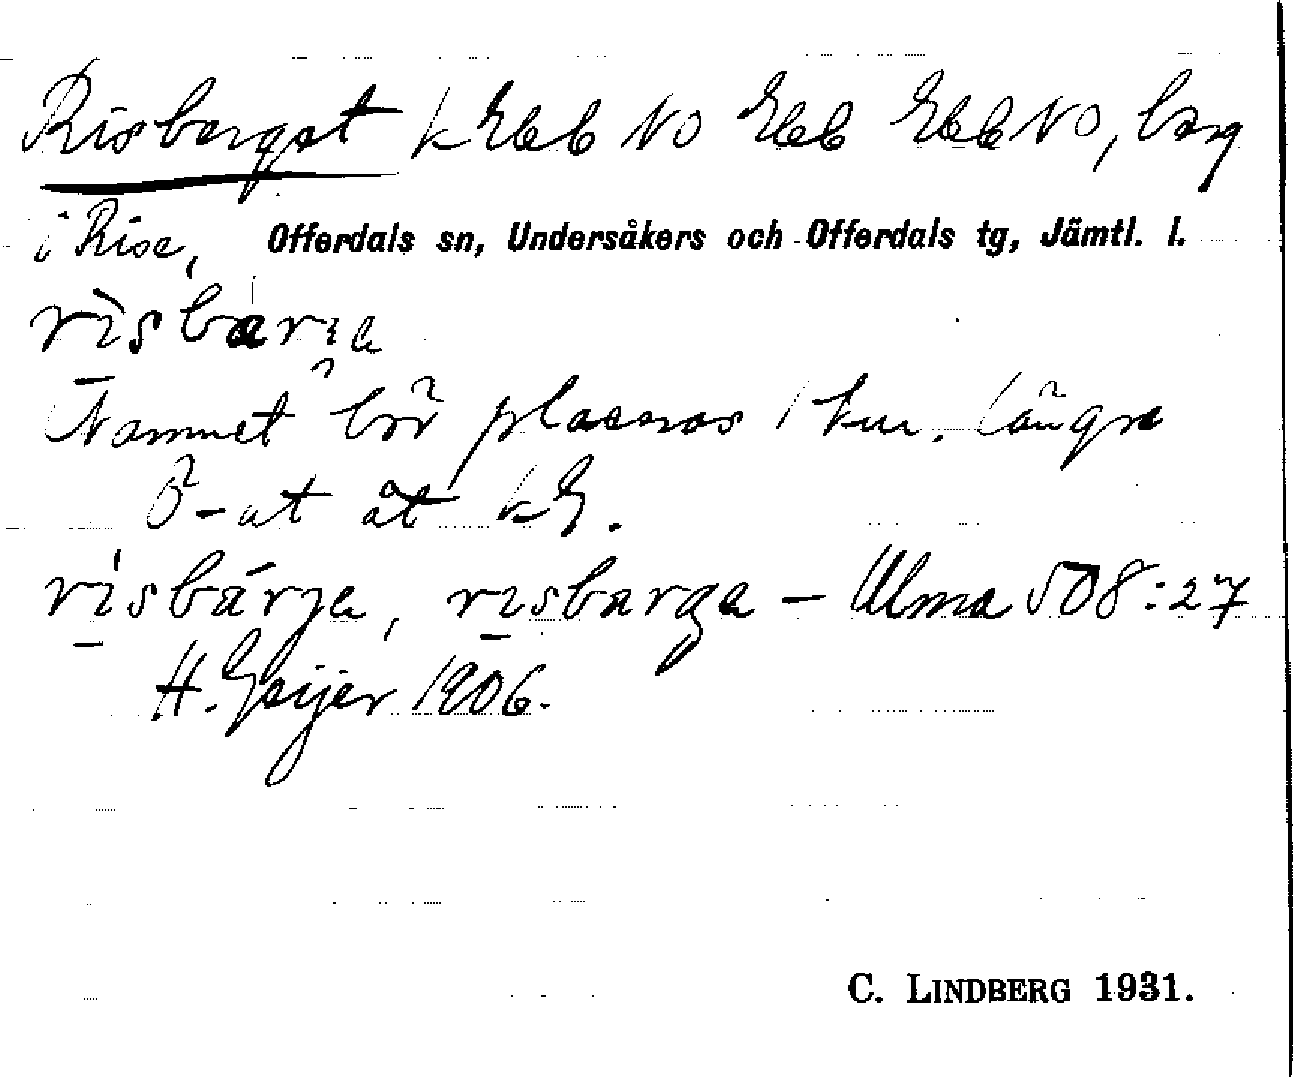 Risberget k Ebb NO Ebb Ebb NO, berg
i Rise, Offerdals sn, Undersåkers och Offerdals tg, Jämtl. l.
rìsbarɪa
Namnet bör placeras 1 km. längre
Ö-ut åt kE.
risbárja, rɪsbarga – Ulma 508:27
H. Geijer 1906.
C. LINDBERG 1931.